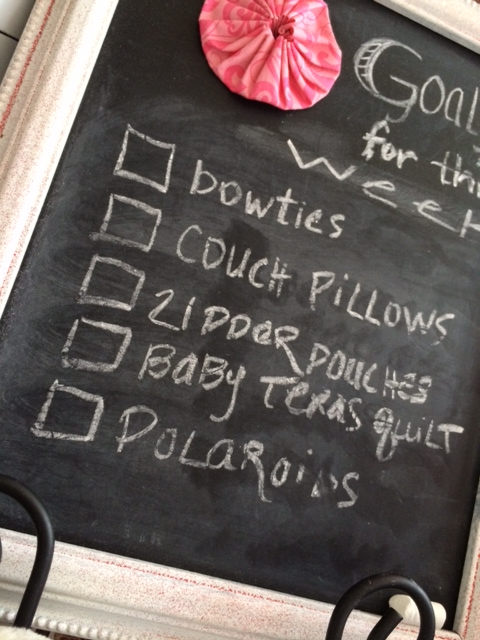 Goal
for thi
Week
bowties
COUCH PiLLOWS
ZIPPER POUCHES
BABY TEXAS QUILT
POLAROIDS